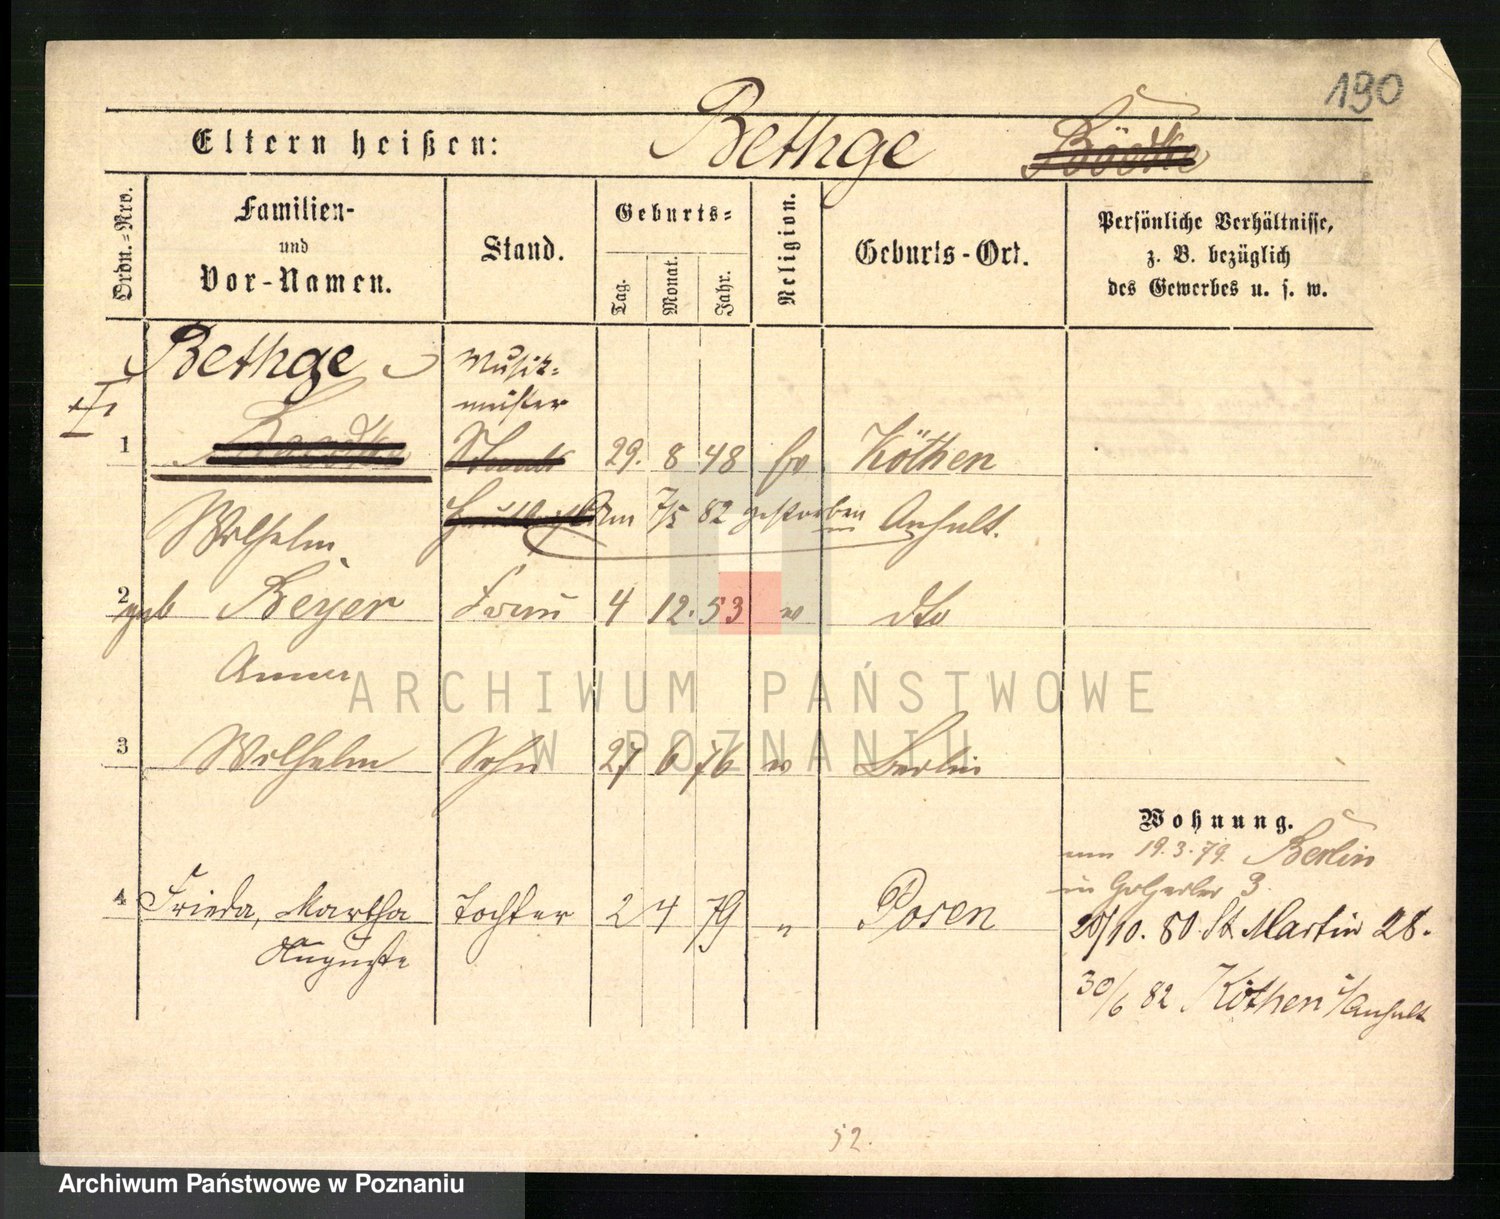 190
Eltern heißen: Bethge
Ordn.=Nro.
Familien-
und
Vor-Namen.
Stand.
Geburts=
Tag.
Monat.
Jahr.
Religion.
Geburts-Ort.
Persönliche Verhältnisse,
z. B. bezüglich
des Gewerbes u. s. w.
Bethge Musik=
meister
1 29. 8 48 Köthen
Wilhelm Am 7/5 82 gestorben Anhalt.
2 geb Beyer Frau 4 12. 53 " dto
Anna
3 Wilhelm Sohn 27 6 76 " Berlin
Wohnung.
19.3.79. Berlin
3.
4 Frieda, Martha Tochter 2 4 79 " Posen
Auguste
20/10. 80. St. Martin 28.
30/6 82 Köthen i/Anhalt
52.
ARCHIWUM PAŃSTWOWE
W POZNANIU
Archiwum Państwowe w Poznaniu